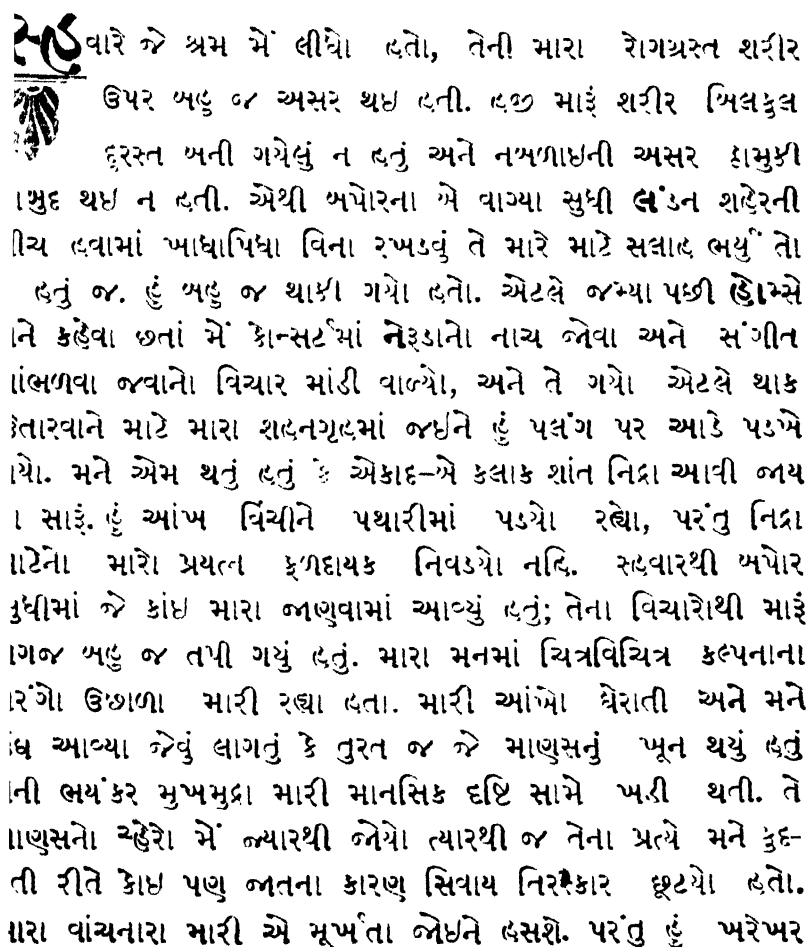 સ્હવારે જે શ્રમ મેં લીધો હતો, તેની મારા રોગગ્રસ્ત શરીર
ઉપર બહુ જ અસર થઇ હતી. હજી મારૂં શરીર બિલકુલ
દુરસ્ત બની ગયેલું ન હતું અને નબળાઇની અસર હામુકી
થઇ ન હતી. એથી બપોરના બે વાગ્યા સુધી લંડન શહેરની
હવામાં ખાધાપિધા વિના રખડવું તે મારે માટે સલાહ ભર્યું તો
હતું જ. હું બહુ જ થાકી ગયો હતો. એટલે જમ્યા પછી હોમ્સે
મને કહેવા છતાં મેં કોન્સર્ટમાં નેરૂડાનો નાચ જોવા અને સંગીત
સાંભળવા જવાનો વિચાર માંડી વાળ્યો, અને તે ગયો એટલે થાક
ઉતારવાને માટે મારા શહનગૃહમાં જઇને હું પલંગ પર આડે પડખે
થયો. મને એમ થતું હતું કે એકાદ-બે કલાક શાંત નિદ્રા આવી જાય
સારૂં. હું આંખ વિંચીને પથારીમાં પડયો રહ્યો, પરંતુ નિદ્રા
માટેનો મારો પ્રયત્ન ફળદાયક નિવડયો નહિ. સ્હવારથી બપોર
સુધીમાં જે કાંઇ મારા જાણવામાં આવ્યું હતું; તેના વિચારોથી મારૂં
મગજ બહુ જ તપી ગયું હતું. મારા મનમાં ચિત્રવિચિત્ર કલ્પનાના
તરંગો ઉછાળા મારી રહ્યા હતા. મારી આંખો ઘેરાતી અને મને
ઉંઘ આવ્યા જેવું લાગતું કે તુરત જ જે માણસનું ખૂન થયું હતું
તેની ભયંકર મુખમુદ્રા મારી માનસિક દષ્ટિ સામે ખડી થતી. તે
માણસનો ચ્હેરો મેં જ્યારથી જોયો ત્યારથી જ તેના પ્રત્યે મને કુદ-
રતી રીતે કોઇ પણ જાતના કારણ સિવાય તિરસ્કાર છૂટયો હતો.
મારા વાંચનારા મારી એ મૂર્ખતા જોઇને હસશે. પરંતુ હું ખરેખર